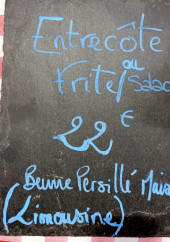 Entrecôte
ou
Frites/Salad
22 €
Beurre Persillé Mais
(Limousine)